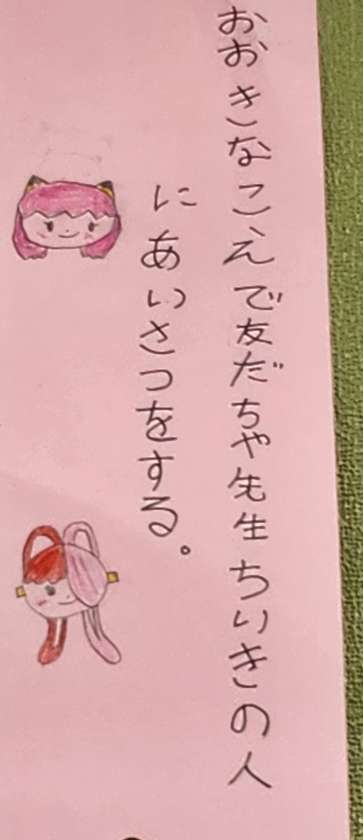 おおきなこえで友だちや先生ちいきの人
にあいさつをする。